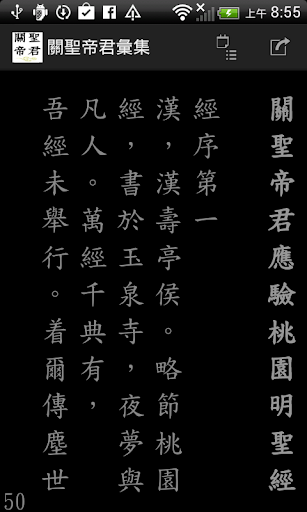 上午 8:55
關聖
帝君
關聖帝君彙集
關聖帝君應驗桃園明聖經
經序第一
漢，漢壽亭侯。略節桃園
經，書於玉泉寺，夜夢與
凡人。萬經千典有，
吾經未舉行。着爾傳塵世
50